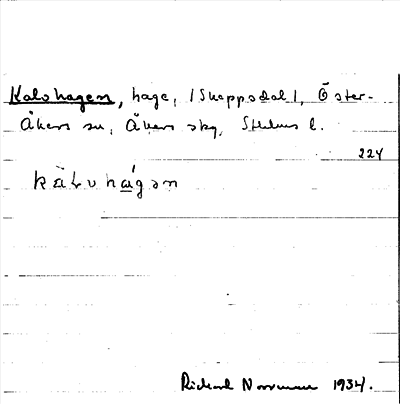 Kalvhagen, hage, (Skeppsdal), Öster-
Åkers sn, Åkers skg, Sthlms l.
224
kàlvhàgən
Rickard Norrman 1934.